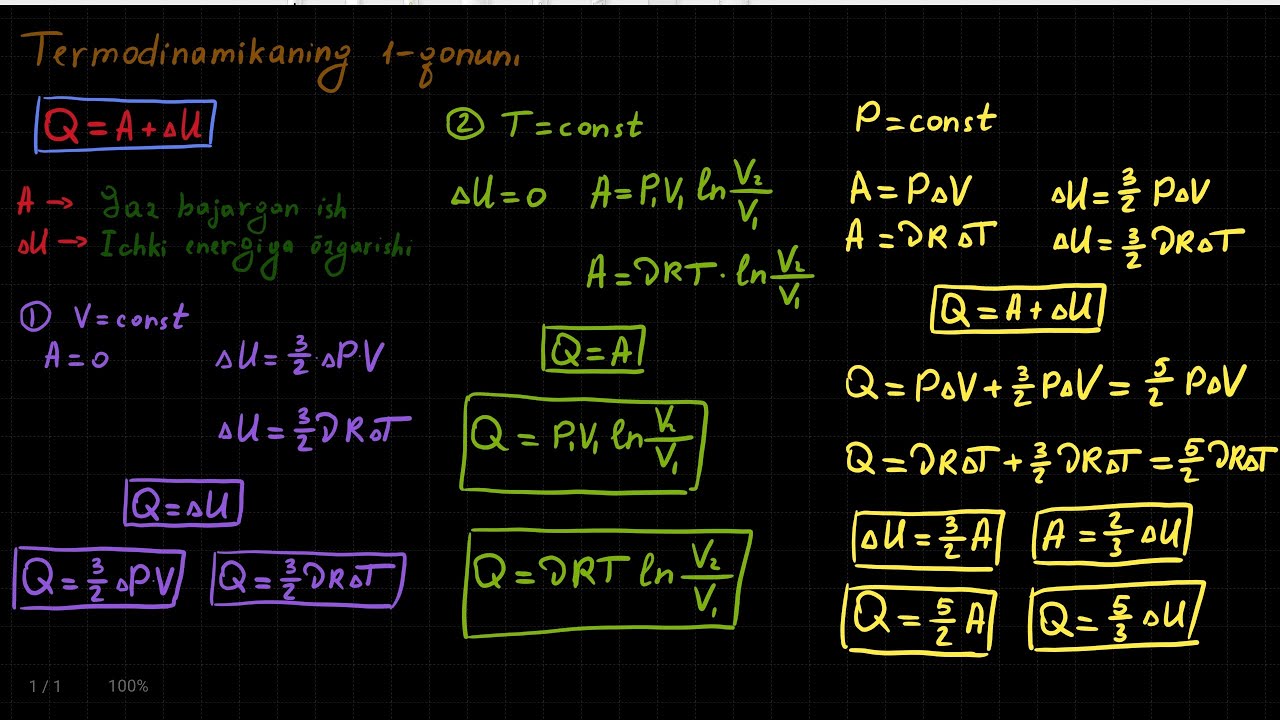 Termodinamikaning 1-qonuni
Q = A + ΔU
A → Gaz bajargan ish
ΔU → Ichki energiya õzgarishi
① V = const
A = 0
ΔU = 3/2 · ΔP · V
ΔU = 3/2 νRΔT
Q = ΔU
Q = 3/2 ΔP·V
Q = 3/2 νRΔT
② T = const
ΔU = 0
A = P₁V₁ ln V₂/V₁
A = νRT · ln V₂/V₁
Q = A
Q = P₁V₁ ln V₂/V₁
Q = νRT ln V₂/V₁
P = const
A = PΔV
ΔU = 3/2 PΔV
A = νRΔT
ΔU = 3/2 νRΔT
Q = A + ΔU
Q = PΔV + 3/2 PΔV = 5/2 PΔV
Q = νRΔT + 3/2 νRΔT = 5/2 νRΔT
ΔU = 3/2 A
A = 2/3 ΔU
Q = 5/2 A
Q = 5/3 ΔU
1 / 1
100%